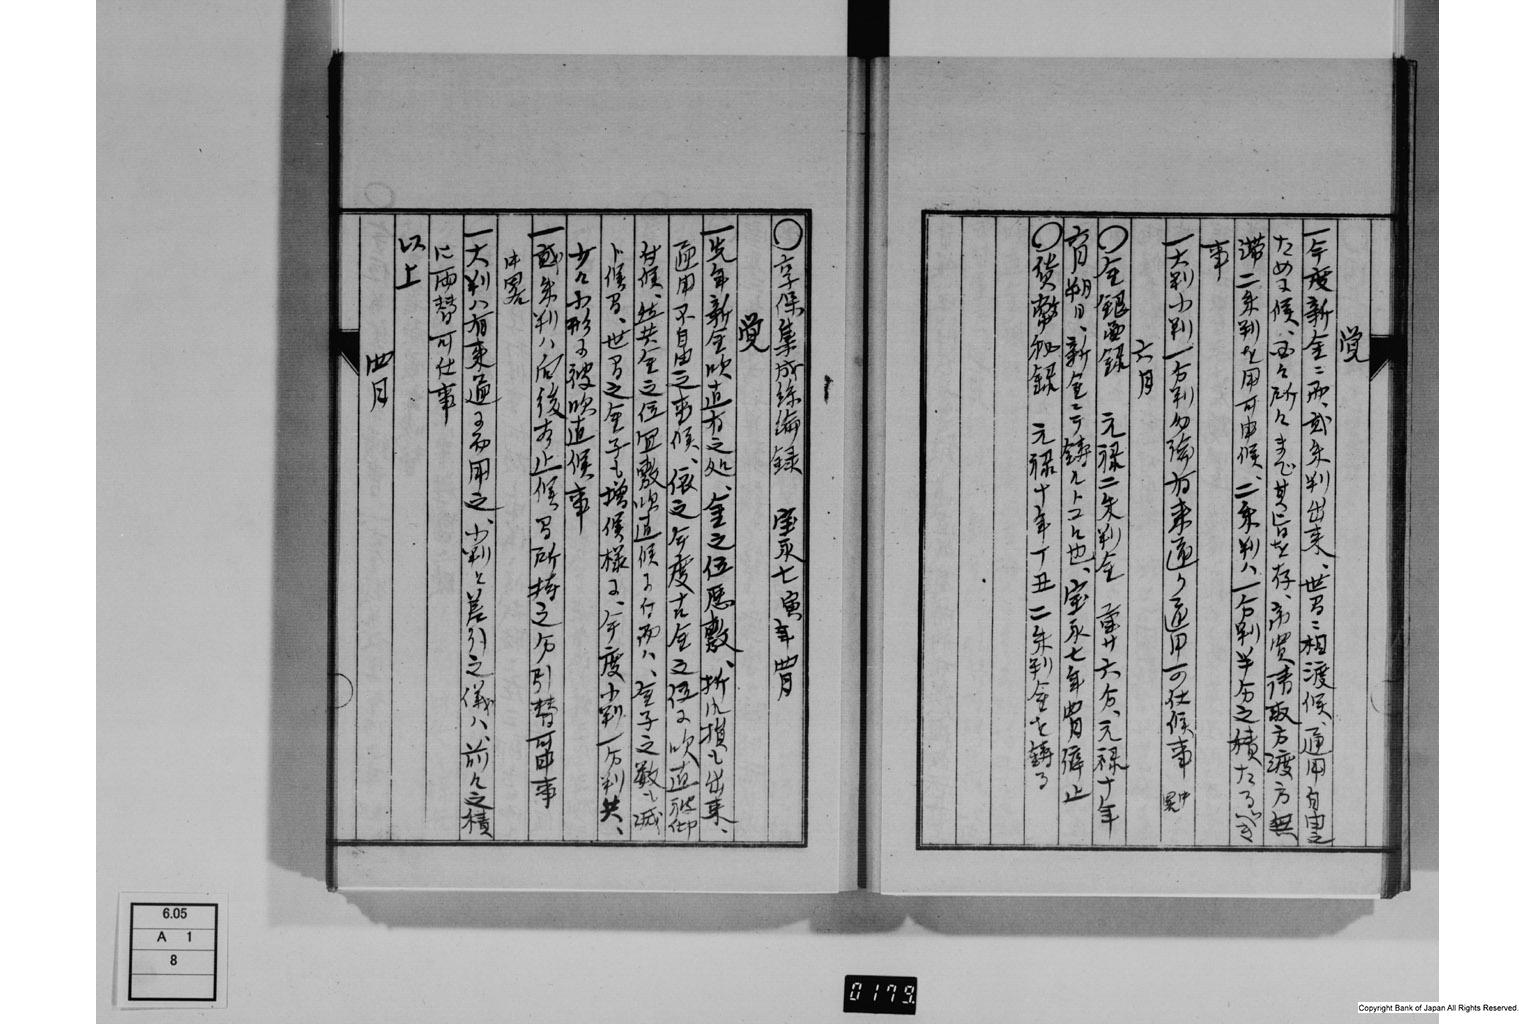 覚
一今度新金ニ而、弐朱判出来、世間ニ相渡候、通用自由之
ため候、国々所々まで其旨を存、売買請取方渡方無
滞二朱判を用可申候、二朱判ハ一分判半分之積たるべき
事
一大判小判一分判勿論有来通り通用可仕候事 中略
六月
〇金銀図録 元禄二朱判金 重廿六分、元禄十年
六月朔日、新金ニテ鋳ルトコロ也、宝永七年四月停止
〇貨幣秘録 元禄十年丁丑二朱判金を鋳る
〇享保集成絲綸録 宝永七寅年四月
覚
一先年新金吹直有之処、金之位悪敷、折レ損も出来、
通用不自由之事候、依之今度古金之位に吹直被仰
付候、然共金之位宜敷吹直候に付而ハ、金子之数も減
ト候間、世間之金子も増候様に、今度小判一分判共、
少々小形に被吹直候事
一弐朱判ハ向後相止候間所持之分引替可申事
中略
一大判ハ有来通可用之、小判と差引之儀ハ、前々之積
に両替可仕事
以上
四月
6.05
A 1
8
0179
Copyright Bank of Japan All Rights Reserved.